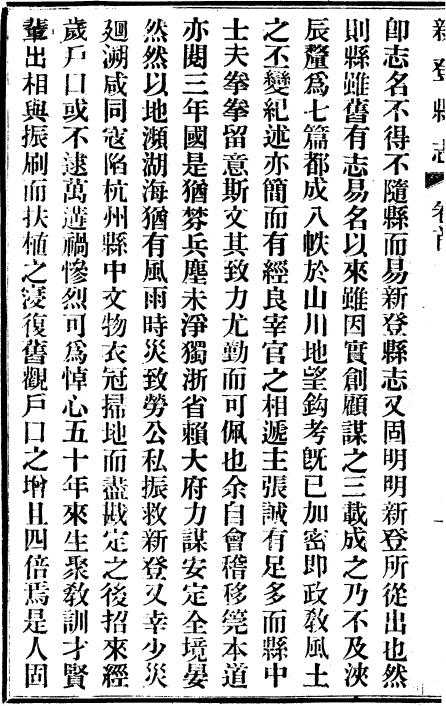 新登縣志 卷首
卽志名不得不隨縣而易新登縣志又固明明新登所從出也然
則縣雖舊有志易名以來雖因實創顧謀之三載成之乃不及浹
辰釐爲七篇都成八帙於山川地望鈎考旣已加密即政敎風土
之丕變紀述亦簡而有經良宰官之相遞主張誠有足多而縣中
士夫拳拳留意斯文其致力尤勤而可佩也余自會稽移筦本道
亦閱三年國是猶棼兵塵未淨獨浙省賴大府力謀安定全境晏
然然以地瀕湖海猶有風雨時災致勞公私振救新登又幸少災
廻溯咸同寇陷杭州縣中文物衣冠掃地而盡戡定之後招來經
歲戶口或不逮萬遘禍慘烈可爲悼心五十年來生聚敎訓才賢
輩出相與振刷而扶植之寖復舊觀戶口之增且四倍焉是人固